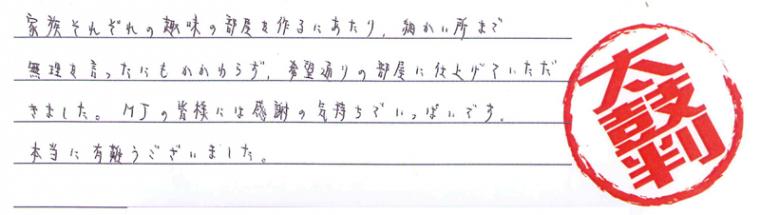 家族それぞれの趣味の部屋を作るにあたり、細かい所まで
無理を言ったにもかかわらず、希望通りの部屋に仕上げていただ
きました。MJの皆様には感謝の気持ちでいっぱいです。
本当に有難うございました。
太鼓判